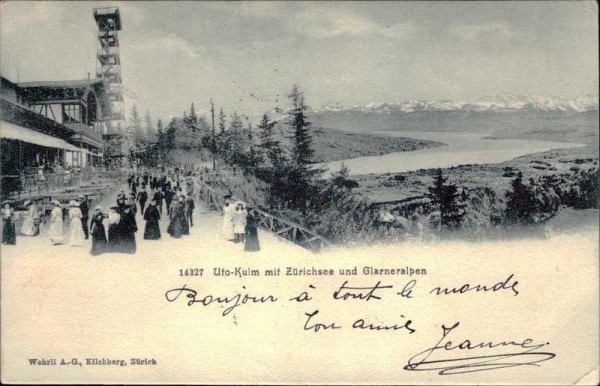 14327 Uto-Kulm mit Zürichsee und Glarneralpen
Bonjour à tout le monde
Ton amie
Jeanne.
Wehrli A.-G., Kilchberg, Zürich